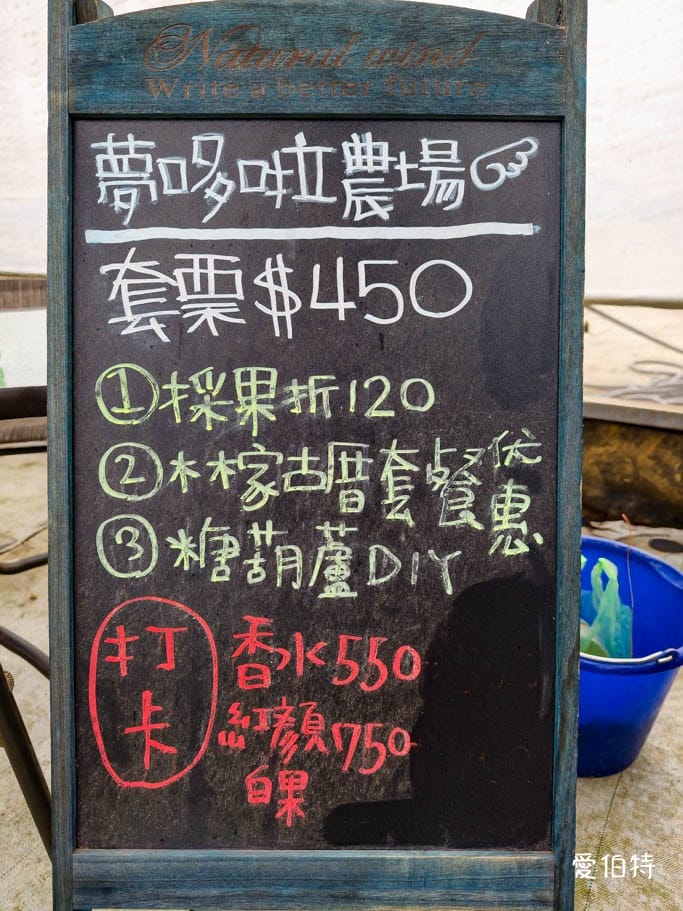 Natural wind
Write a better future
夢哆啦農場
套票$450
①採果折120
②林家古厝套餐优惠
③糖葫蘆DIY
打卡
香水550
紅顏750
白果
愛伯特